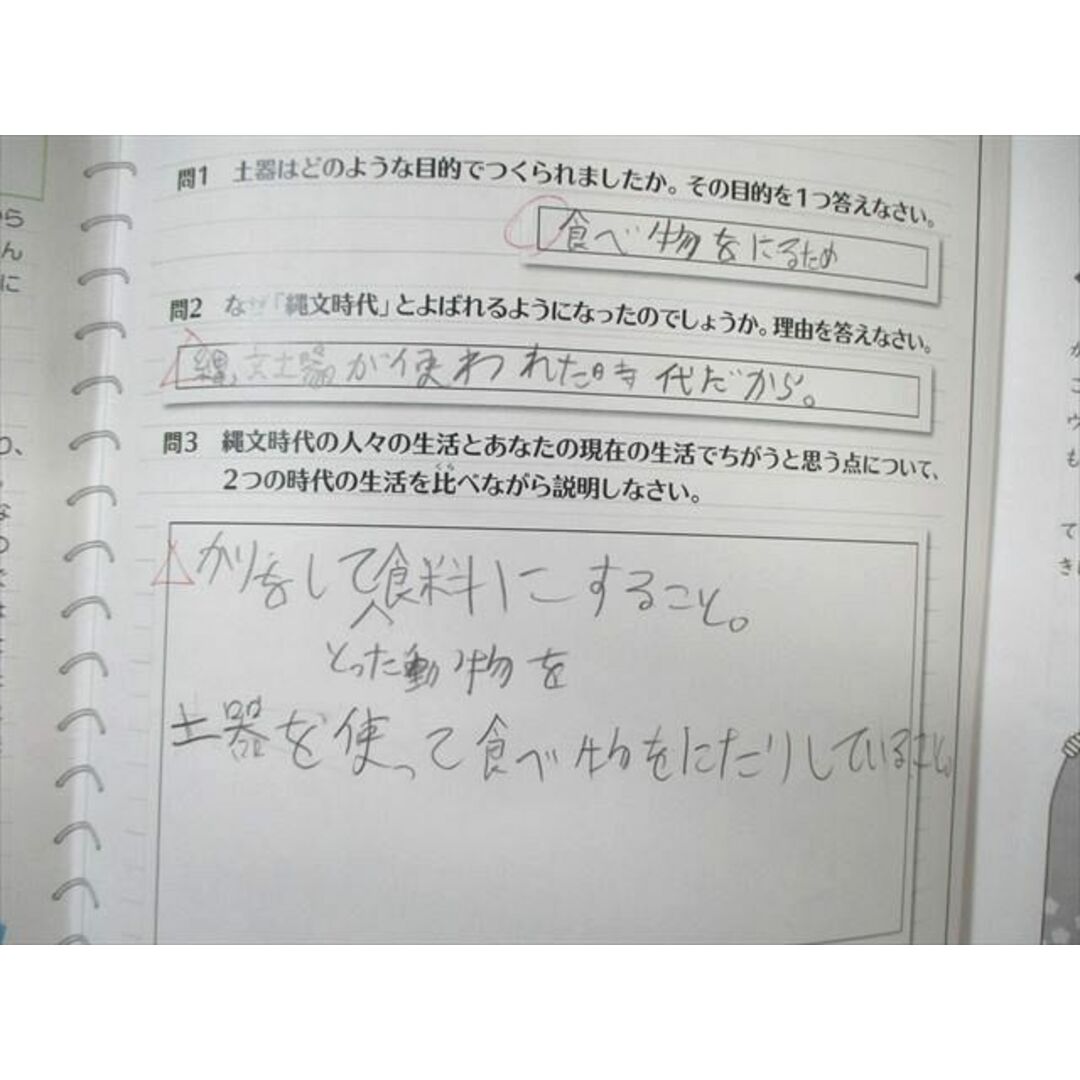 問1 土器はどのような目的でつくられましたか。その目的を1つ答えなさい。
食べ物をにるため
問2 なぜ「縄文時代」とよばれるようになったのでしょうか。理由を答えなさい。
縄文土器が使われた時代だから。
問3 縄文時代の人々の生活とあなたの現在の生活でちがうと思う点について、
2つの時代の生活を比べながら説明しなさい。
くら
かりをして食料にすること。
とった動物を
土器を使って食べ物をにたりしていること。
ら
ん
に